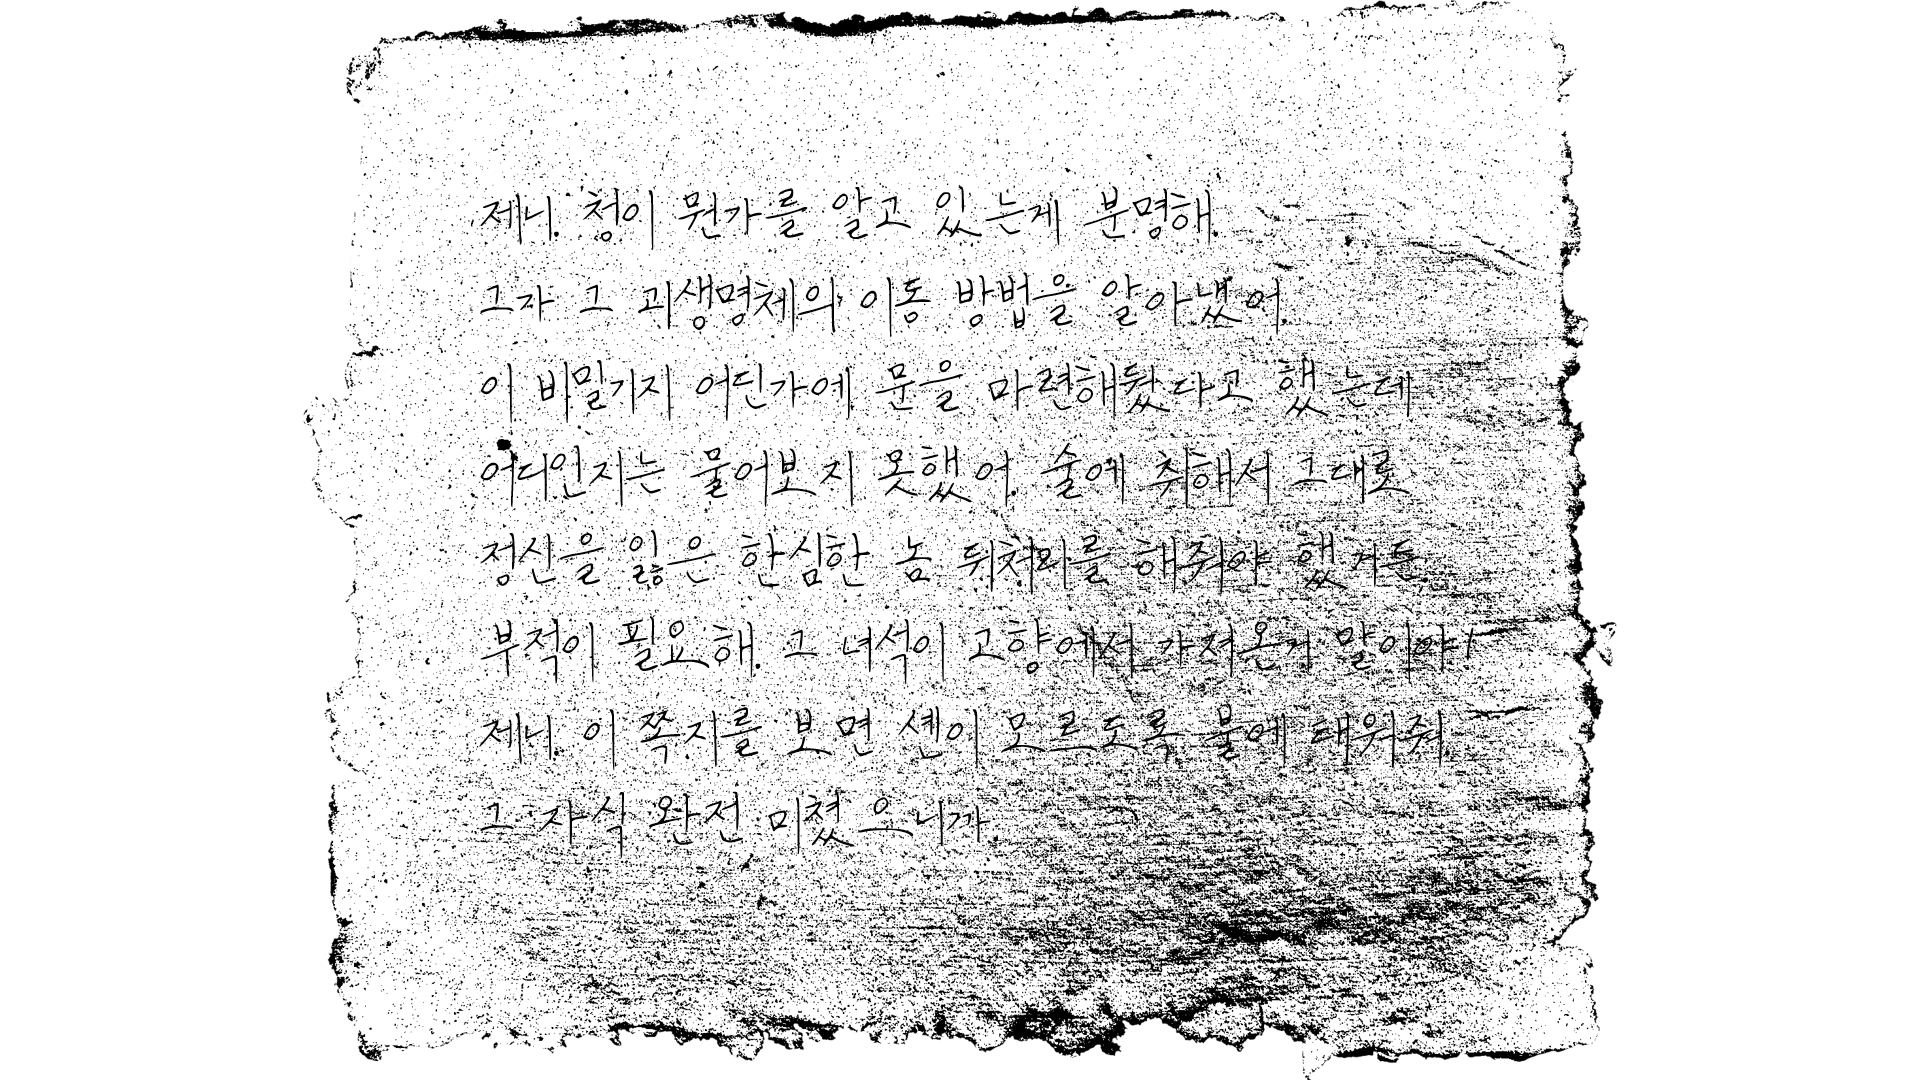 제니. 청이 뭔가를 알고 있는게 분명해.
그자 그 괴생명체의 이동 방법을 알아냈어.
이 바밀기지 어딘가에 문을 마련해뒀다고 했는데
어디인지는 물어보지 못했어. 술에 취해서 그대로
정신을 잃은 한심한 놈 뒤처리를 해줘야 했거든
부적이 필요해. 그 녀석이 고향에서 가져온거 말이야!
제니. 이 쪽지를 보면 셴이 모르도록 불에 태워줘.
그 자식 완전 미쳤으니까.